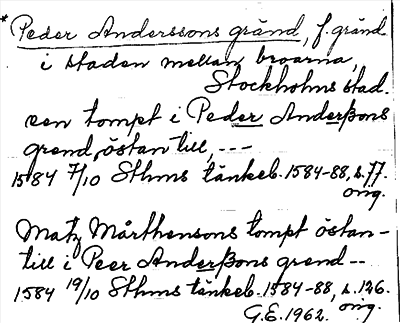 * Peder Anderssons gränd, f. gränd
i staden mellan broarna,
Stockholms stad.
een tompt i Peder Anderßons
grend, östan till, ---
1584 7/10 Sthms tänkeb. 1584-88, s. 77.
orig.
Matz Mårthensons tompt östan-
till i Peer Anderßons grend --
1584 19/10 Sthms tänkeb. 1584-88, s. 126.
orig.
G.E. 1962.